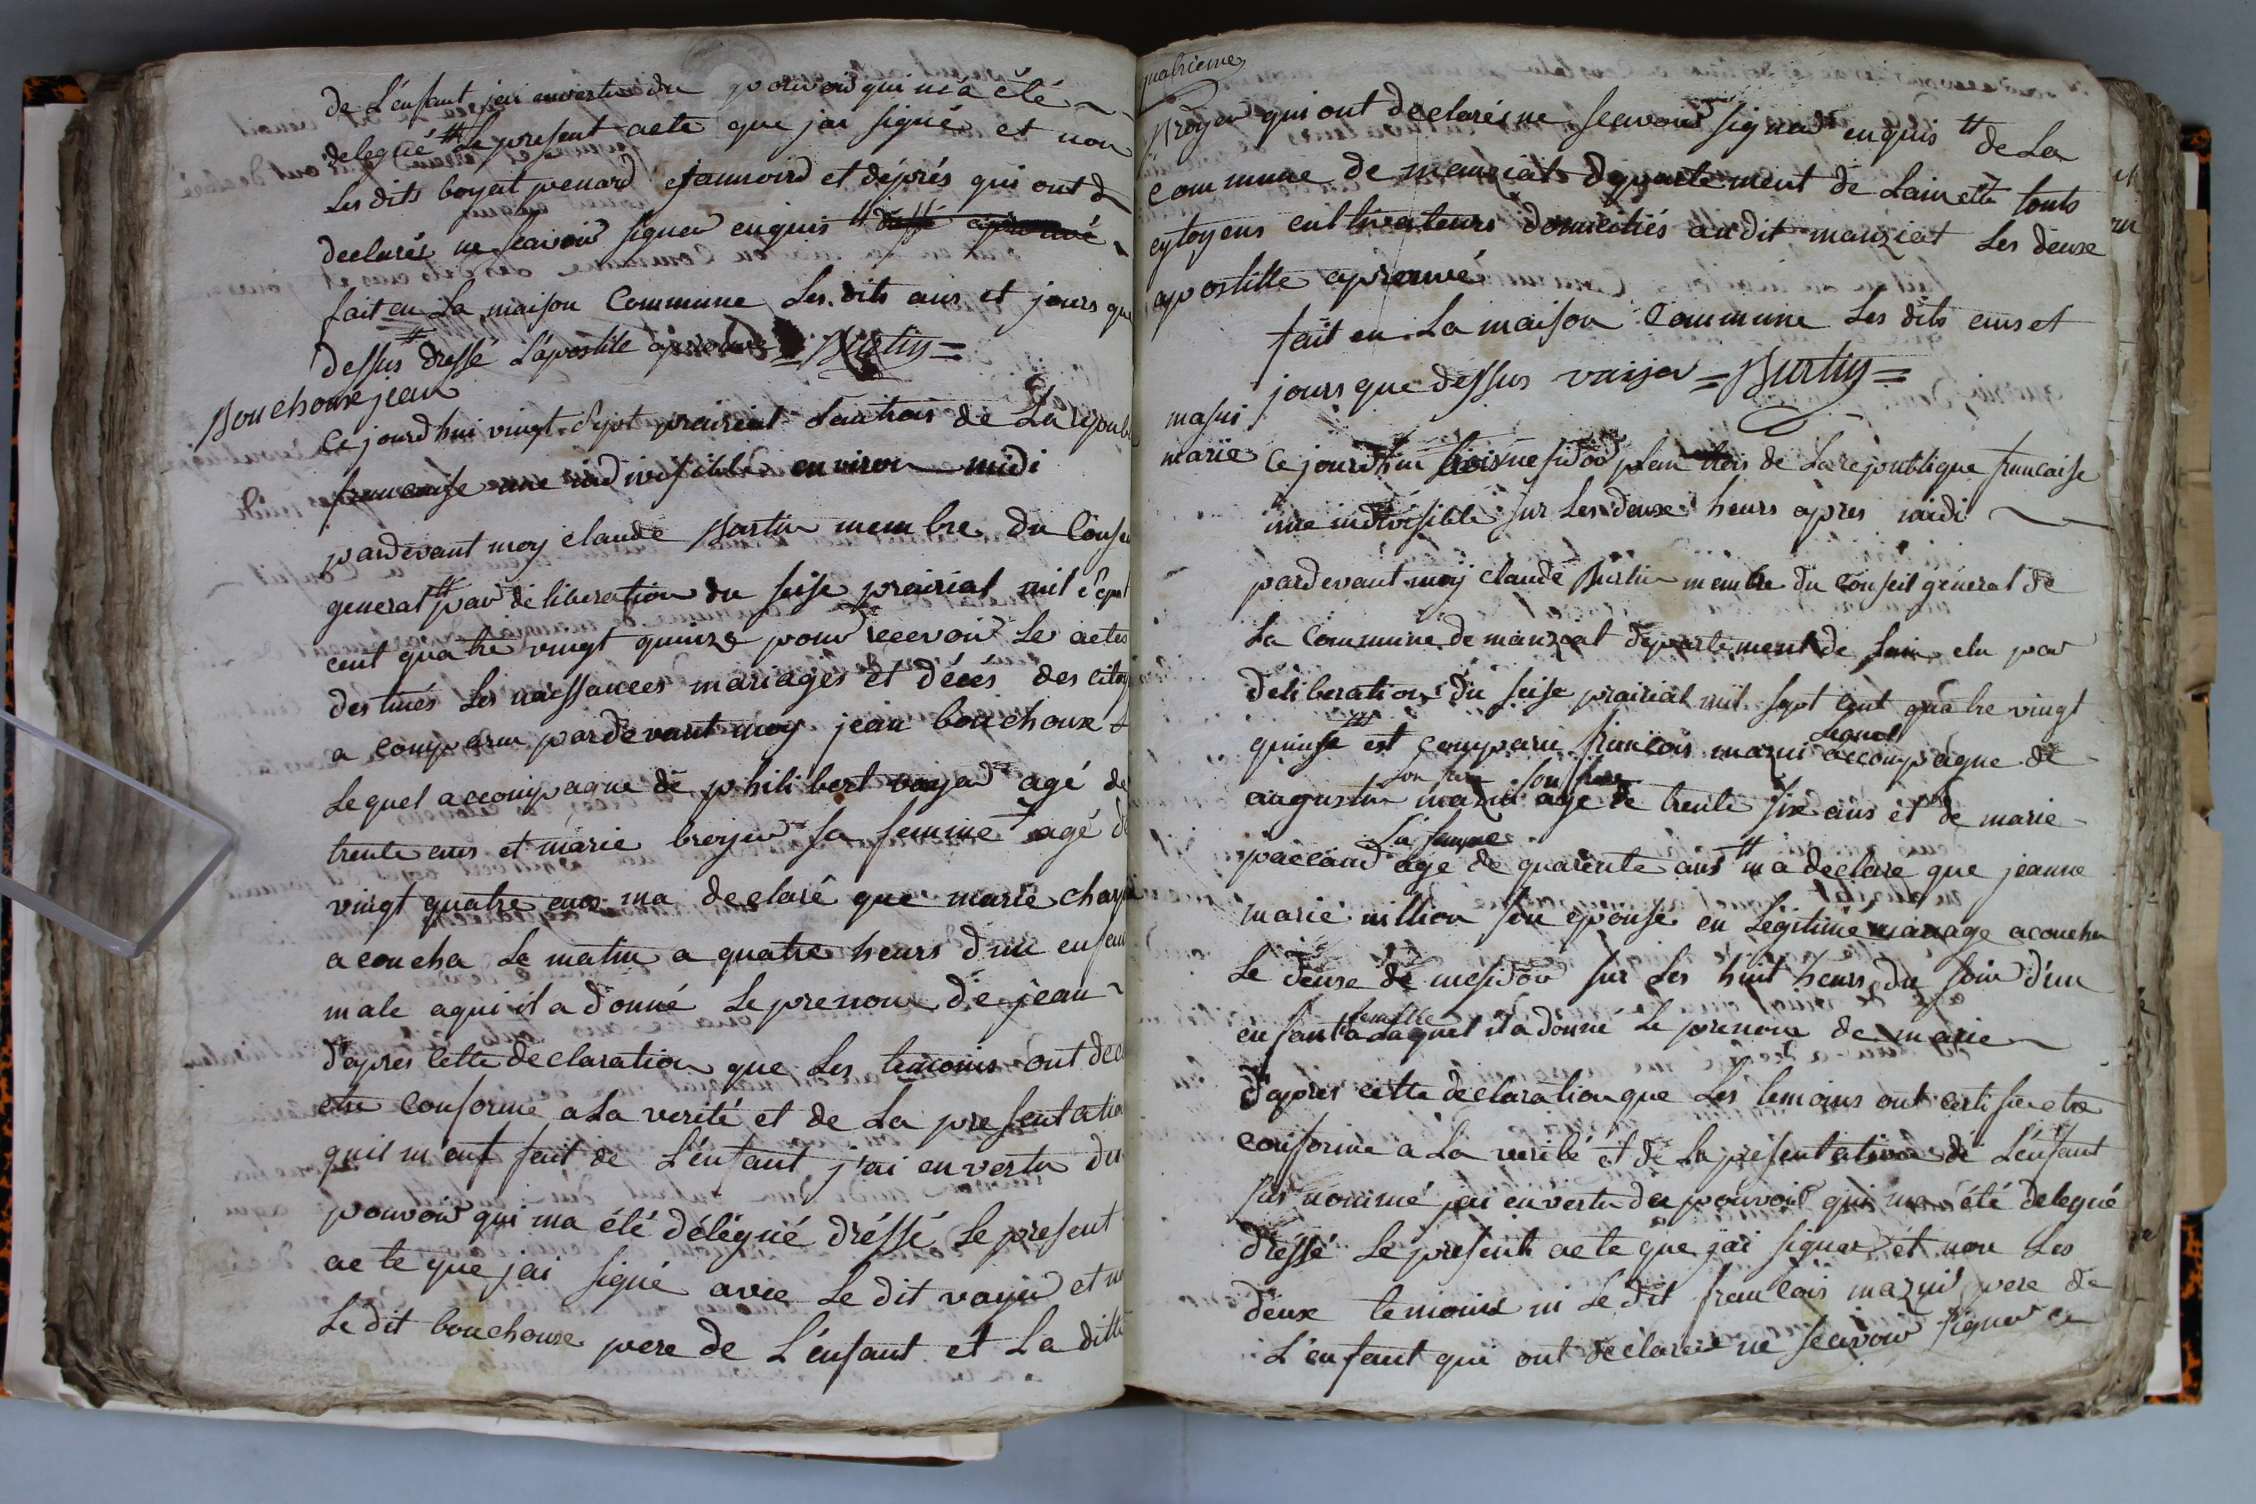 de L'enfant jai envertu du pouvoir qui m'a été
delegué # Le present acte que jai signé et non
Les dits boyat penard et et déprés qui ont
declarés ne scavoir signer enquis # dressé aprouvé
fait en La maison Commune Les dits ans et jours que
dessus # dressé L'apostile aprouvé = Burtin =
Bouchoux jean
Ce jourd'hui vingt sept prairial L'an trois de La republi
francaise une indivisible environ midi
pardevant moy claude Burtin membre du Conseil
general # par deliberation du seise prairial mil sept
cent quatre vingt quinze pour recevoir Le actes
destinés Les naissances mariages et décés des citoy
a comparu pardevant moy jean bouchoux
Lequel accompagné de philibert voyer agé de
trente ans et marie broyer sa femme agé de
vingt quatre ans ma declaré que marie
acoucha Le matin a quatre heurs d'un enfant
male a qui il a donné Le prenom de jean
d'apres cette declaration que Les temoins ont dec
etre conforme a La verité et de La presentation
quil m'ont fait de L'enfant j'ai en vertu du
pouvoir qui ma été délégué dréssé Le present
acte que jai signé avec Le dit voyer et non
Le dit bouchoux pere de L'enfant et La ditte
quatrieme
Broyer qui ont declarés ne scavoir signer enquis # de La
commune de manziat departement de Lain # touts
cytoyens cultivateurs domiciliés audit manziat Les deux
apostille aprouvé
fait en La maison Commune Les dits ans et
jours que dessus = Burtin =
masui
marie
Ce jourd'hui trois messidor L'an trois de La republique francaise
une indivisible sur Les deux heurs apres midi
pardevant moy claude Burtin membre du Conseil general de
La Commune de manziat departement de Lain elu par
deliberation du seise prairial mil sept cent quatre vingt
quinse # est comparu francois mazui Lequel accompagne de
augustin mazui son frere agé de trente six ans et de marie
paccaud sa femme agé de quarente ans # m'a declaré que jeanne
marie million son epouse en Légitime mariage acoucha
Le deux de messidor sur Les huit heurs du soir d'un
enfant femelle a Laquel il a donné Le prenom de marie
d'apres cette declaration que Les temoins ont certifié etre
conforme a La verité et de La presentation de L'enfant
sus nommé jai en vertu du pouvoir qui ma été delegué
dréssé Le present acte que jai signer et non Les
deux temoins ni Le dit francois mazui pere de
L'enfant qui ont declarés ne scavoir signer